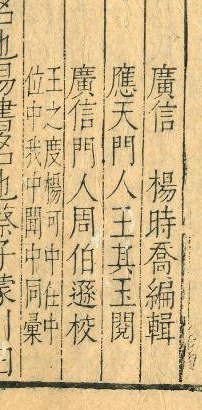 廣信　楊時喬編輯
應天門人王其玉閱
廣信門人周伯遜校
王之度楊可中任中
位中我中聞中同彙